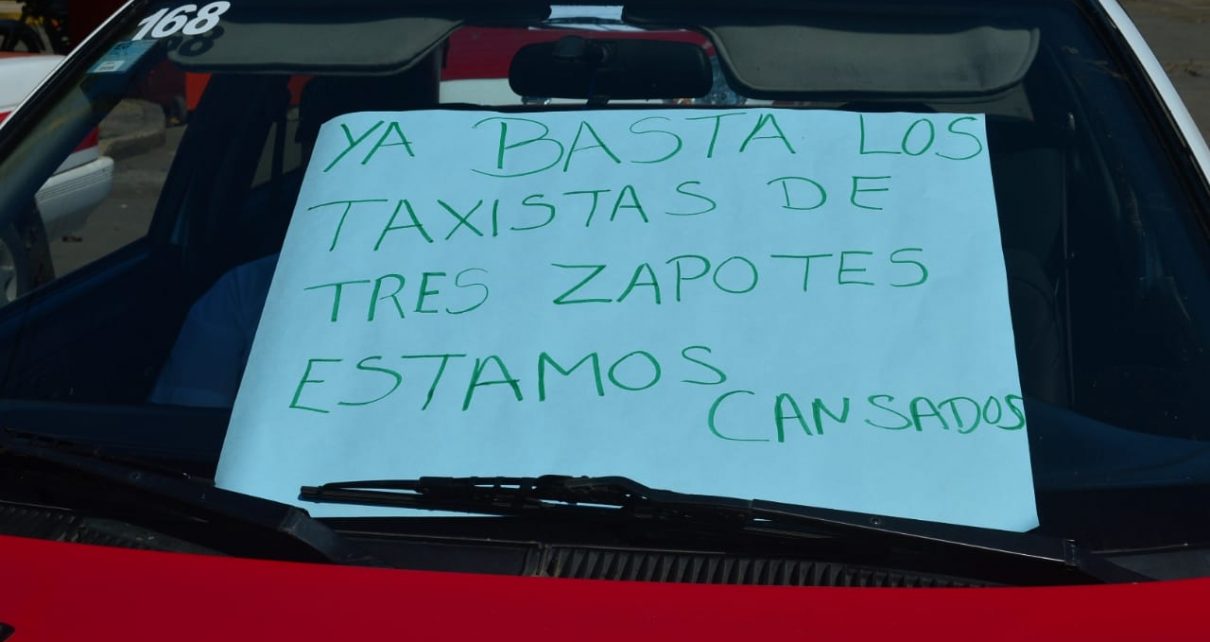 168
YA BASTA LOS
TAXISTAS DE
TRES ZAPOTES
ESTAMOS
CANSADOS